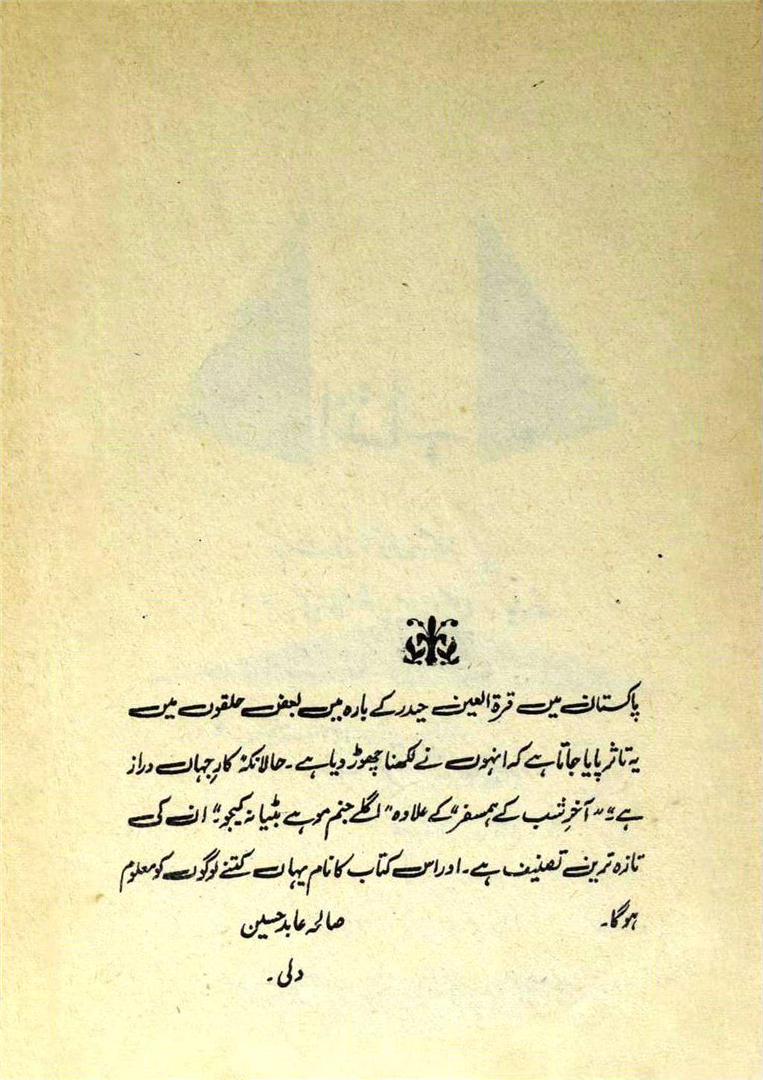 پاکستان میں قرۃ العین حیدر کے بارہ میں بعض حلقوں میں
یہ تاثر پایا جاتا ہے کہ انہوں نے لکھنا چھوڑ دیا ہے۔ حالانکہ کارِ جہاں دراز
ہے"۔ "آخرِ شب کے ہمسفر" کے علاوہ "اگلے جنم موہے بٹیا نہ کیجو"۔ ان کی
تازہ ترین تصنیف ہے۔ اور اس کتاب کا نام یہاں کتنے لوگوں کو معلوم
ہوگا۔
صالحہ عابد حسین
دلی۔